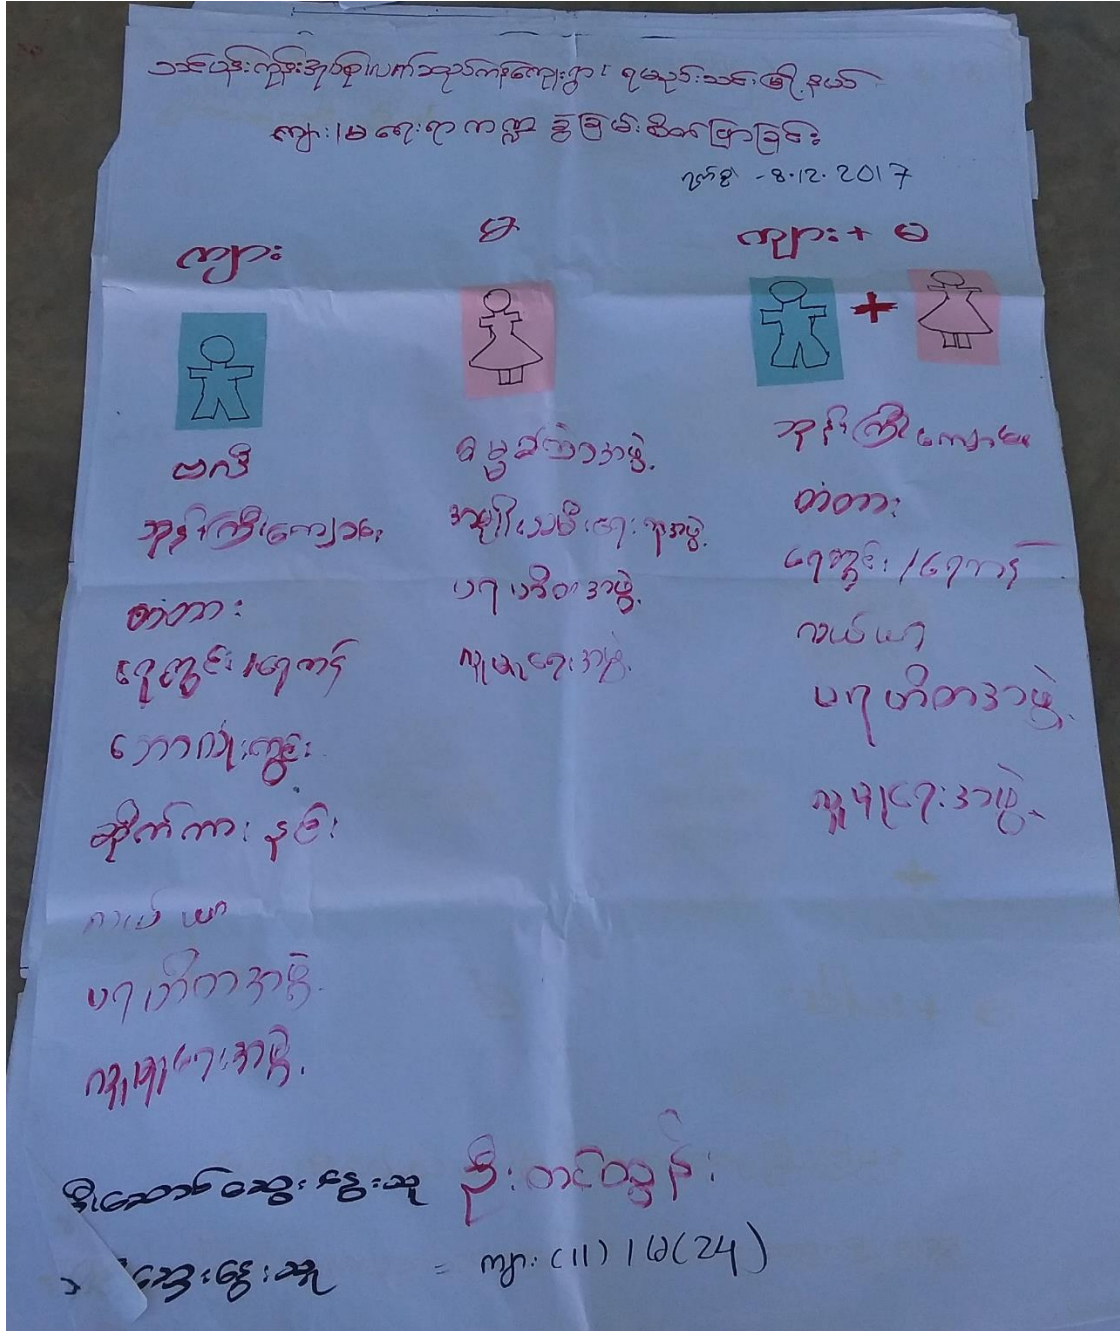 သင်ပန်းကုန်းအုပ်စု၊လက်သည်ကန်ကျေးရွာ၊ ရမည်းသင်းမြို့နယ်
ကျား/မရေးရာကဏ္ဍ ခွဲခြမ်းစိတ်ဖြာခြင်း
ရက်စွဲ -8.12.2017
ကျား
ဗလီ
ဘုန်းကြီးကျောင်း
တံတား
ရေတွင်း/ရေကန်
ဘောလုံးကွင်း
ဆိုက်ကားဂိတ်
လယ်ယာ
ပရဟိတအဖွဲ့
လူမှုရေးအဖွဲ့
မ
ဓမ္မစကြာအဖွဲ့
အမျိုးသမီးရေးရာအဖွဲ့
ပရဟိတအဖွဲ့
လူမှုရေးအဖွဲ့
ကျား + မ
+
ဘုန်းကြီးကျောင်း
တံတား
ရေတွင်း/ရေကန်
လယ်ယာ
ပရဟိတအဖွဲ့
လူမှုရေးအဖွဲ့
ဦးဆောင်ဆွေးနွေးသူ ဦးတင်ထွန်း
ဆွေးနွေးသူ = ကျား (11) / မ (24)